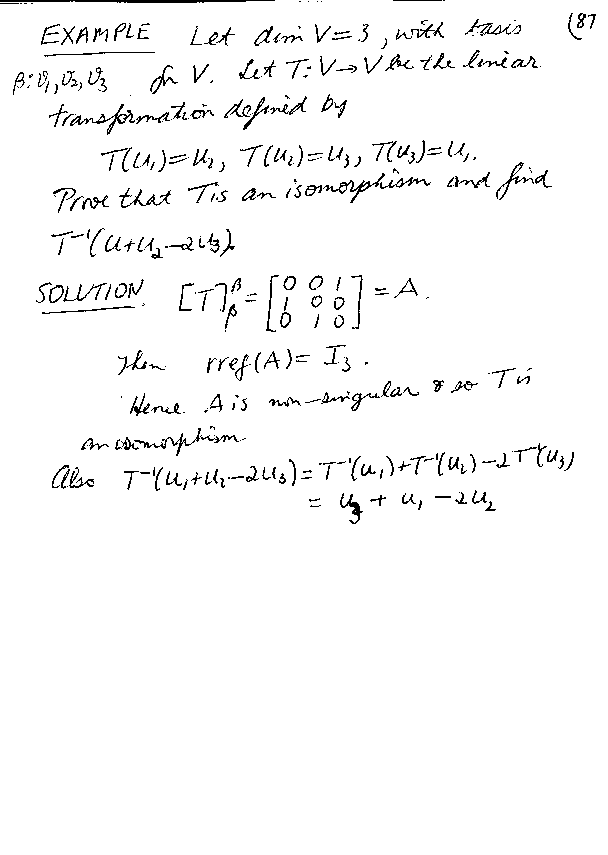 EXAMPLE Let dim V = 3, with basis (87
β: v₁, v₂, v₃ for V. Let T: V → V be the linear
transformation defined by
T(u₁) = u₂, T(u₂) = u₃, T(u₃) = u₁.
Prove that T is an isomorphism and find
T⁻¹(u+u₂−2u₃).
SOLUTION. [T]ᵝᵦ = [0 0 1; 1 0 0; 0 1 0] = A.
Then rref(A) = I₃.
Hence A is non-singular & so T is
an isomorphism
Also T⁻¹(u₁+u₂−2u₃) = T⁻¹(u₁)+T⁻¹(u₂)−2T⁻¹(u₃)
= u₃ + u₁ − 2u₂